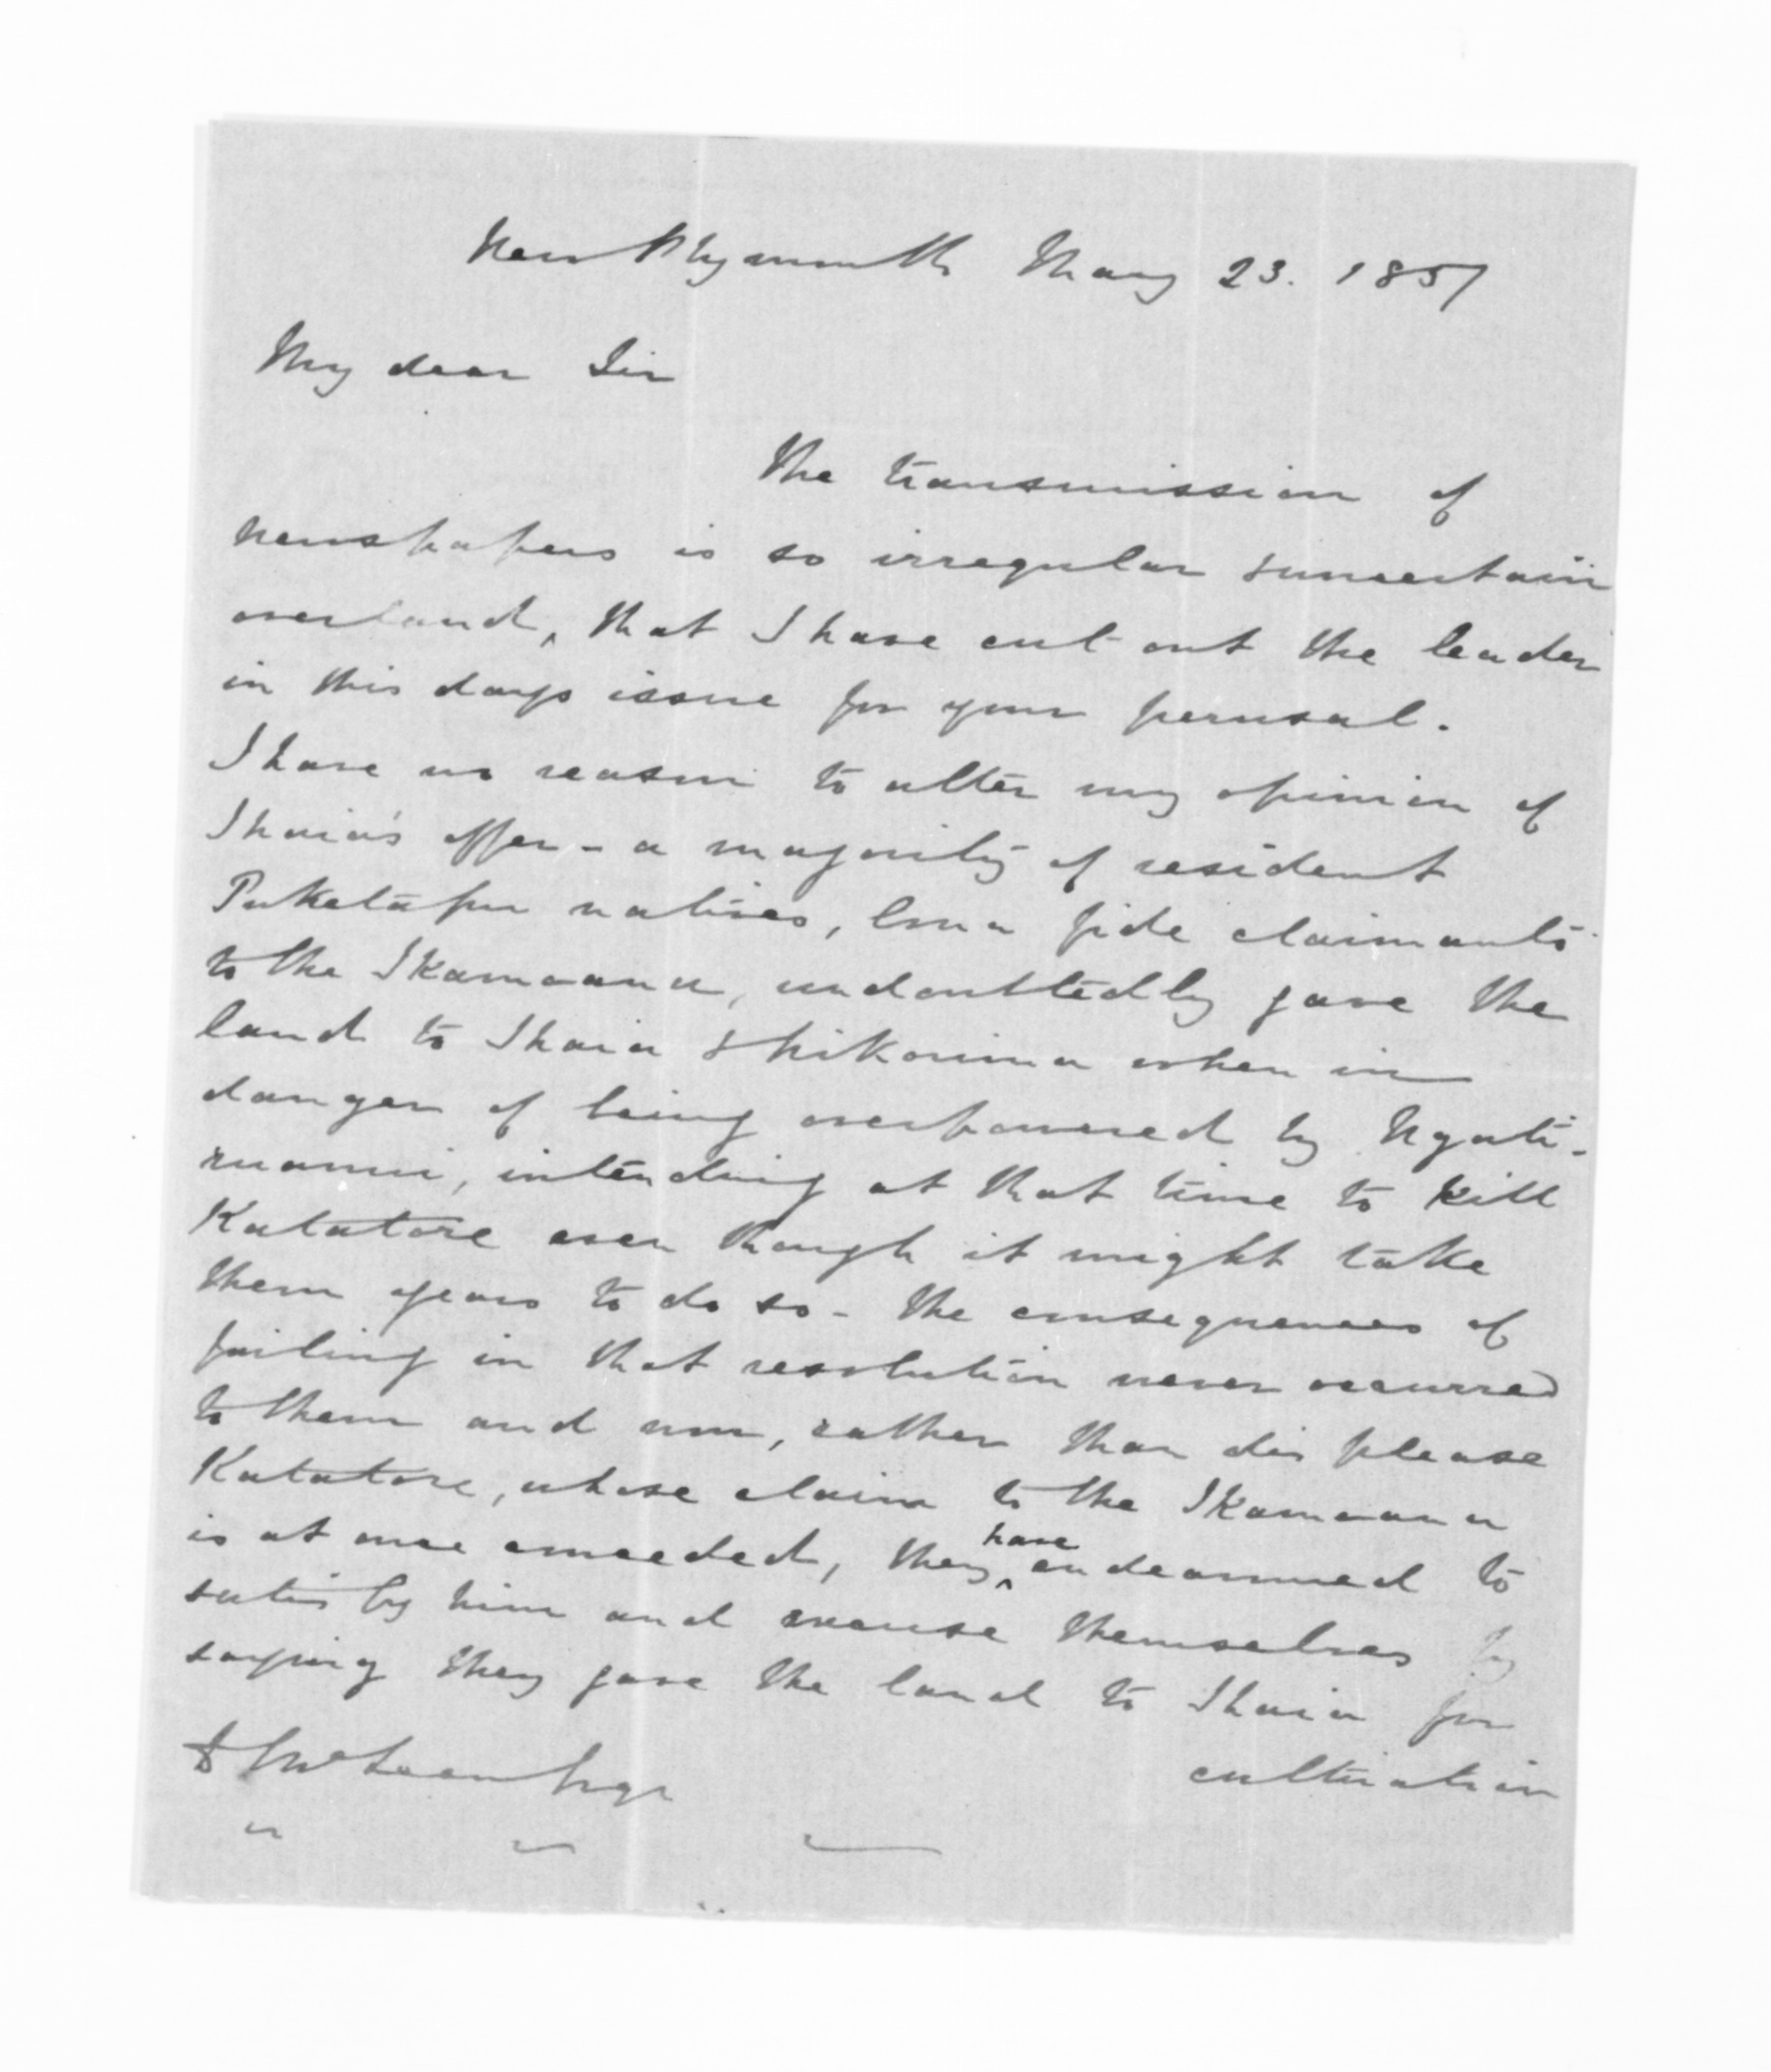 New Plymouth May 23. 1857
My dear Sir
The transmission of
newspapers is so irregular & uncertain
overland, that I have cut out the leader
in this days issue for your perusal.
I have no reason to alter my opinion of
Ihaia's offer - a majority of resident
Puketapu natives, bona fide claimants
to the Ikamoana, undoubtedly gave the
land to Ihaia & Nikorima when in
danger of being overpowered by Ngati-
ruanui, intending at that time to kill
Katatore even though it might take
them years to do so - the consequences of
failing in that resolution never occurred
to them and now, rather than dis please
Katatore, whose claim to the Ikamoana
is at once conceded, they have endeavoured to
satisfy him and excuse themselves by
saying they gave the land to Ihaia for
cultivation
D McLean Esqr